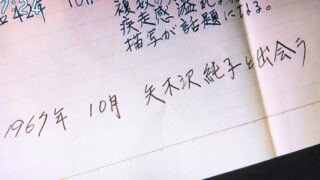 7:24
42年 10月
複数の
疾走感溢れ
描写が話題になる。
1967年 10月 矢木沢純子と出会う